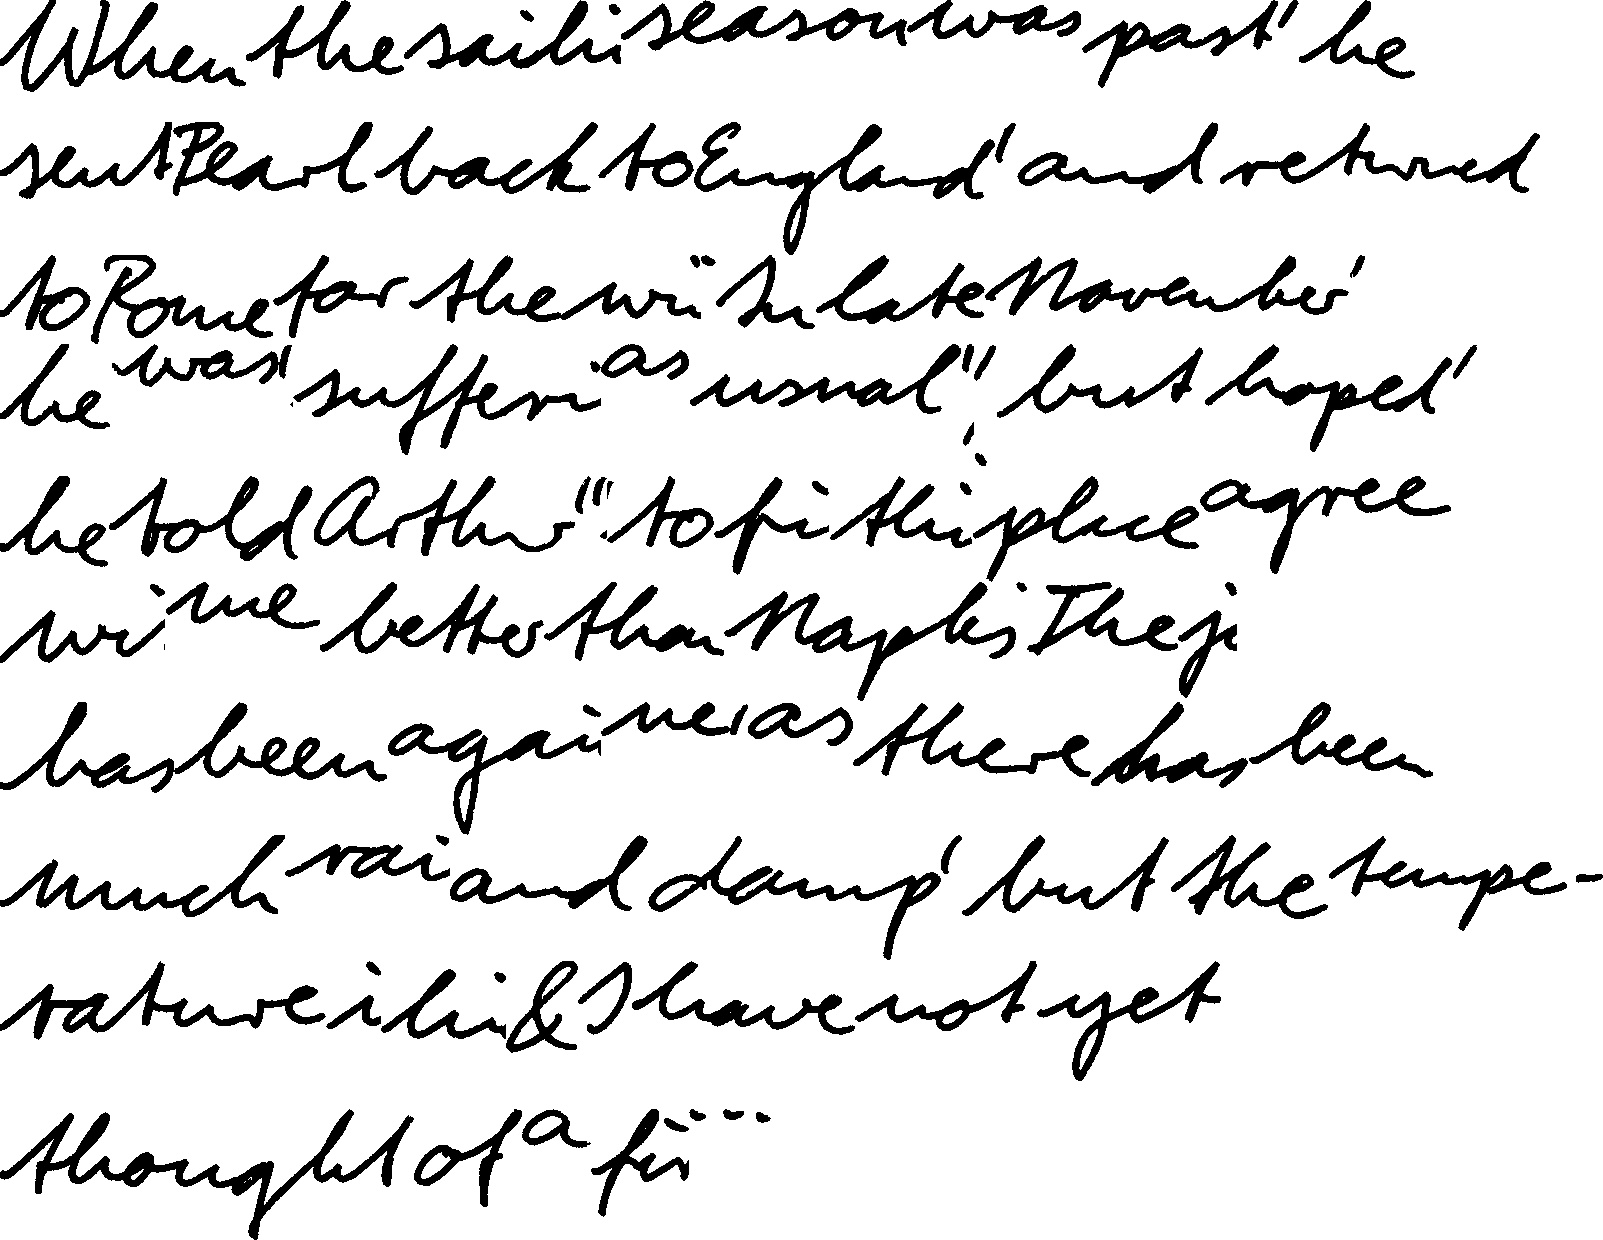 When the saili season was past' he
sent Pearl back to England' and returned
to Rome for the wi In late November'
he was' sufferi as usual'' but hoped'
he told Arthur'' "to fi thi place agree
wi me better than Naples The ji
has been agai me' as there has been
much rai and damp' but the tempe-
rature i hi & I have not yet
thought of a fir...